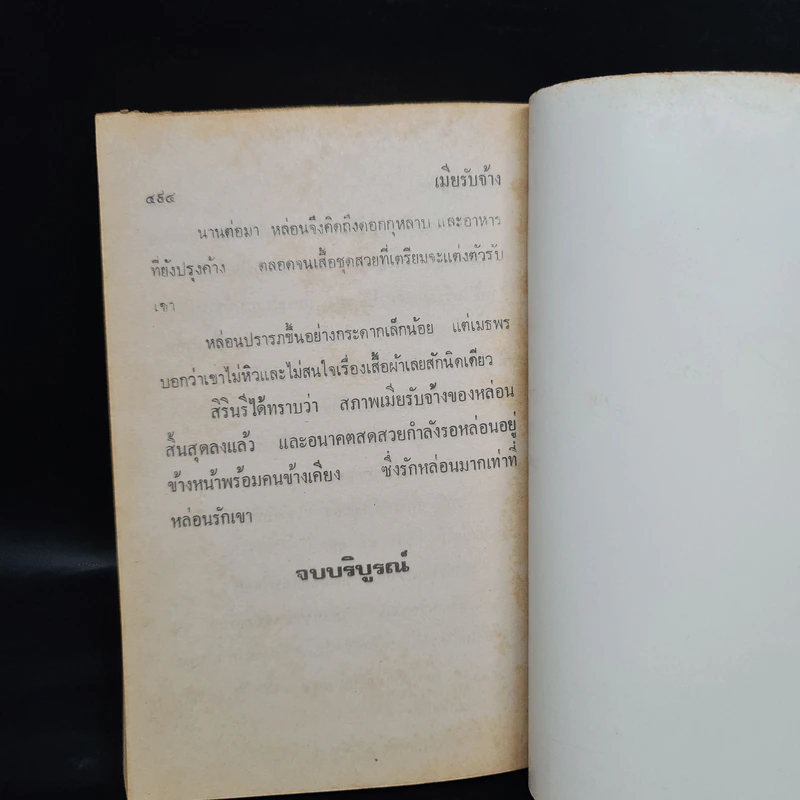 ๔๙๔
เมียรับจ้าง
นานต่อมา หล่อนจึงคิดถึงดอกกุหลาบ และอาหาร
ที่ยังปรุงค้าง ตลอดจนเสื้อชุดสวยที่เตรียมจะแต่งตัวรับ
เขา
หล่อนปรารภขึ้นอย่างกระดากเล็กน้อย แต่เมธพร
บอกว่าเขาไม่หิวและไม่สนใจเรื่องเสื้อผ้าเลยสักนิดเดียว
สิรินรีได้ทราบว่า สภาพเมียรับจ้างของหล่อน
สิ้นสุดลงแล้ว และอนาคตสดสวยกำลังรอหล่อนอยู่
ข้างหน้าพร้อมคนข้างเคียง ซึ่งรักหล่อนมากเท่าที่
หล่อนรักเขา
จบบริบูรณ์